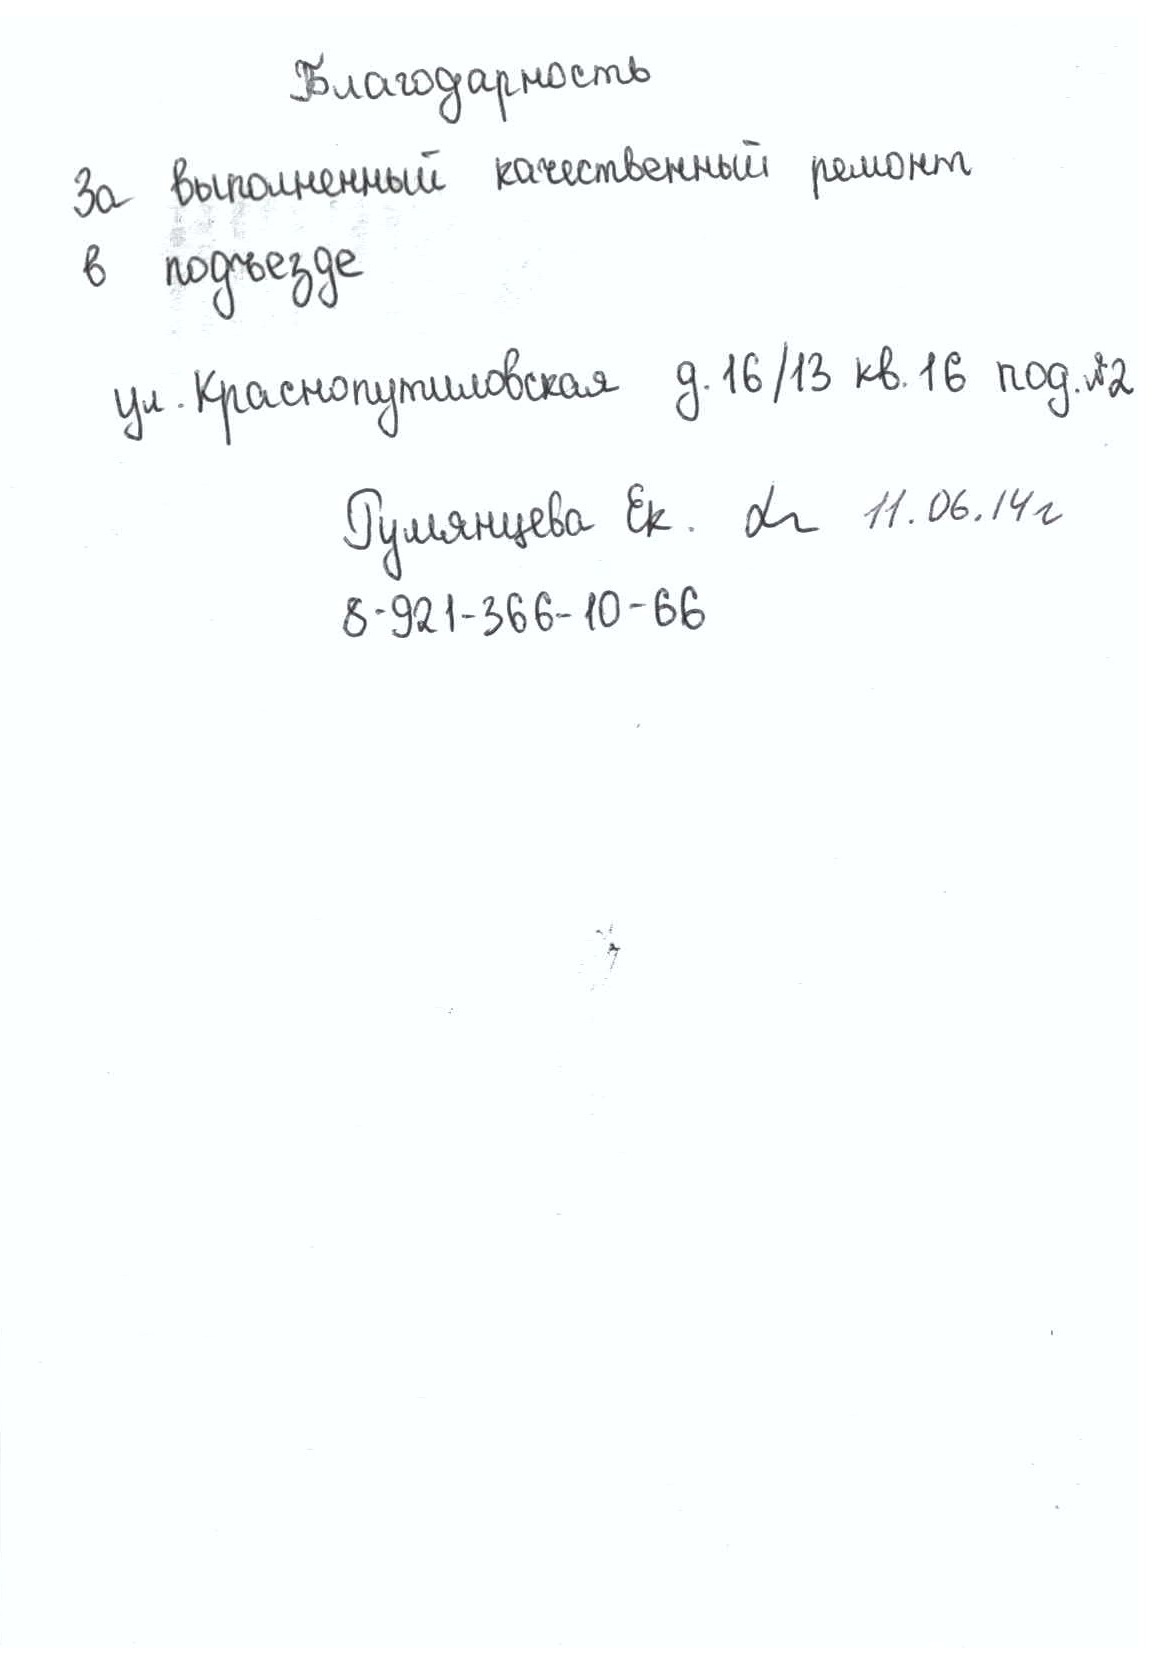 Благодарность
За выполненный качественный ремонт
в подъезде
ул. Краснопутиловская д. 16/13 кв. 16 под. №2
Румянцева Ек. 11.06.14г
8-921-366-10-66